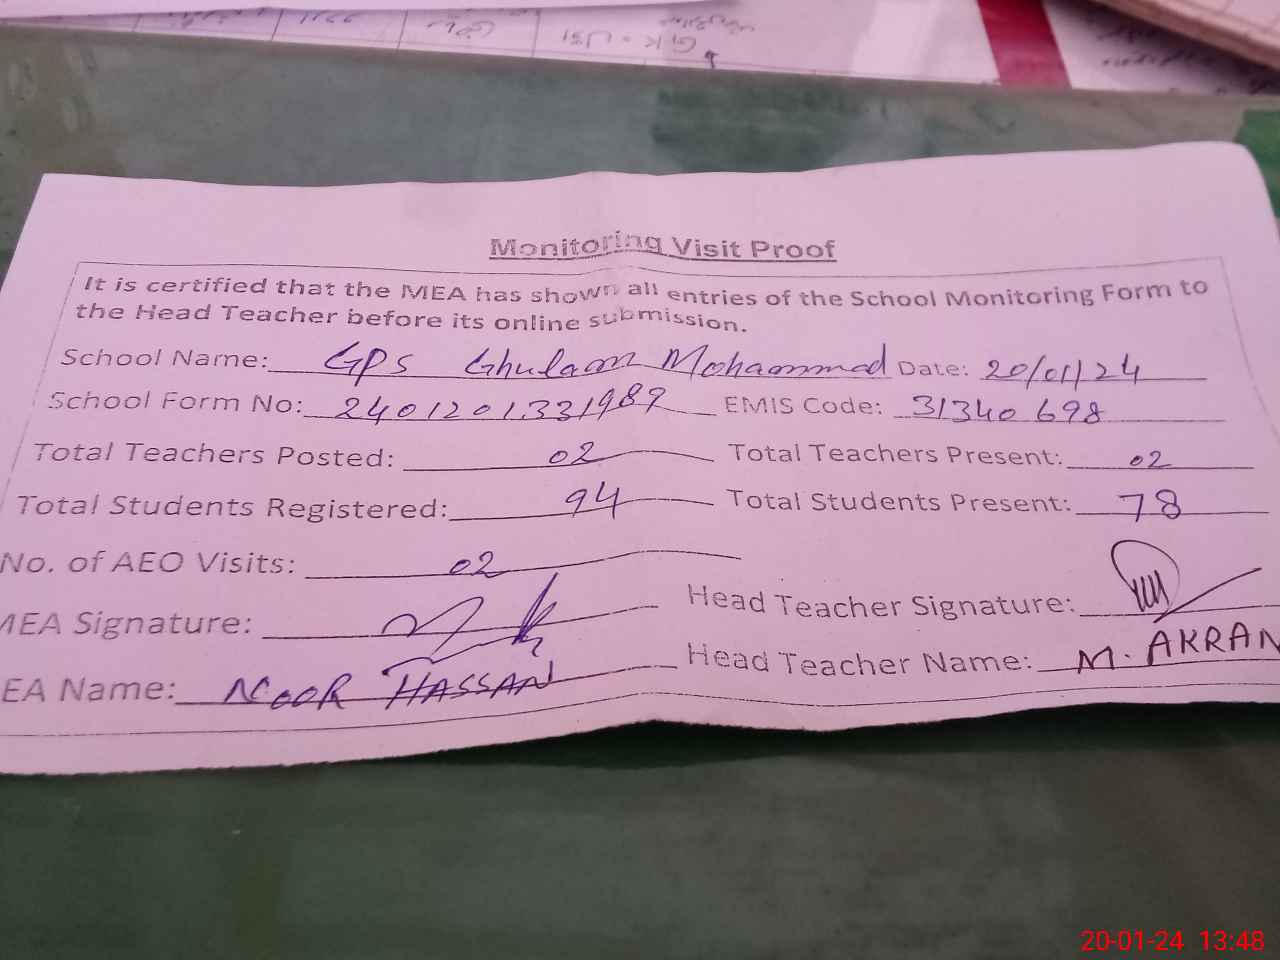 Monitoring Visit Proof
It is certified that the MEA has shown all entries of the School Monitoring Form to
the Head Teacher before its online submission.
School Name: GPS Ghulam Mohammad Date: 20/01/24
School Form No: 2401201331989 EMIS Code: 31340698
Total Teachers Posted: 02 Total Teachers Present: 02
Total Students Registered: 94 Total Students Present: 78
No. of AEO Visits: 02
MEA Signature: Head Teacher Signature:
EA Name: NOOR HASSAN Head Teacher Name: M. AKRAM
20-01-24 13:48